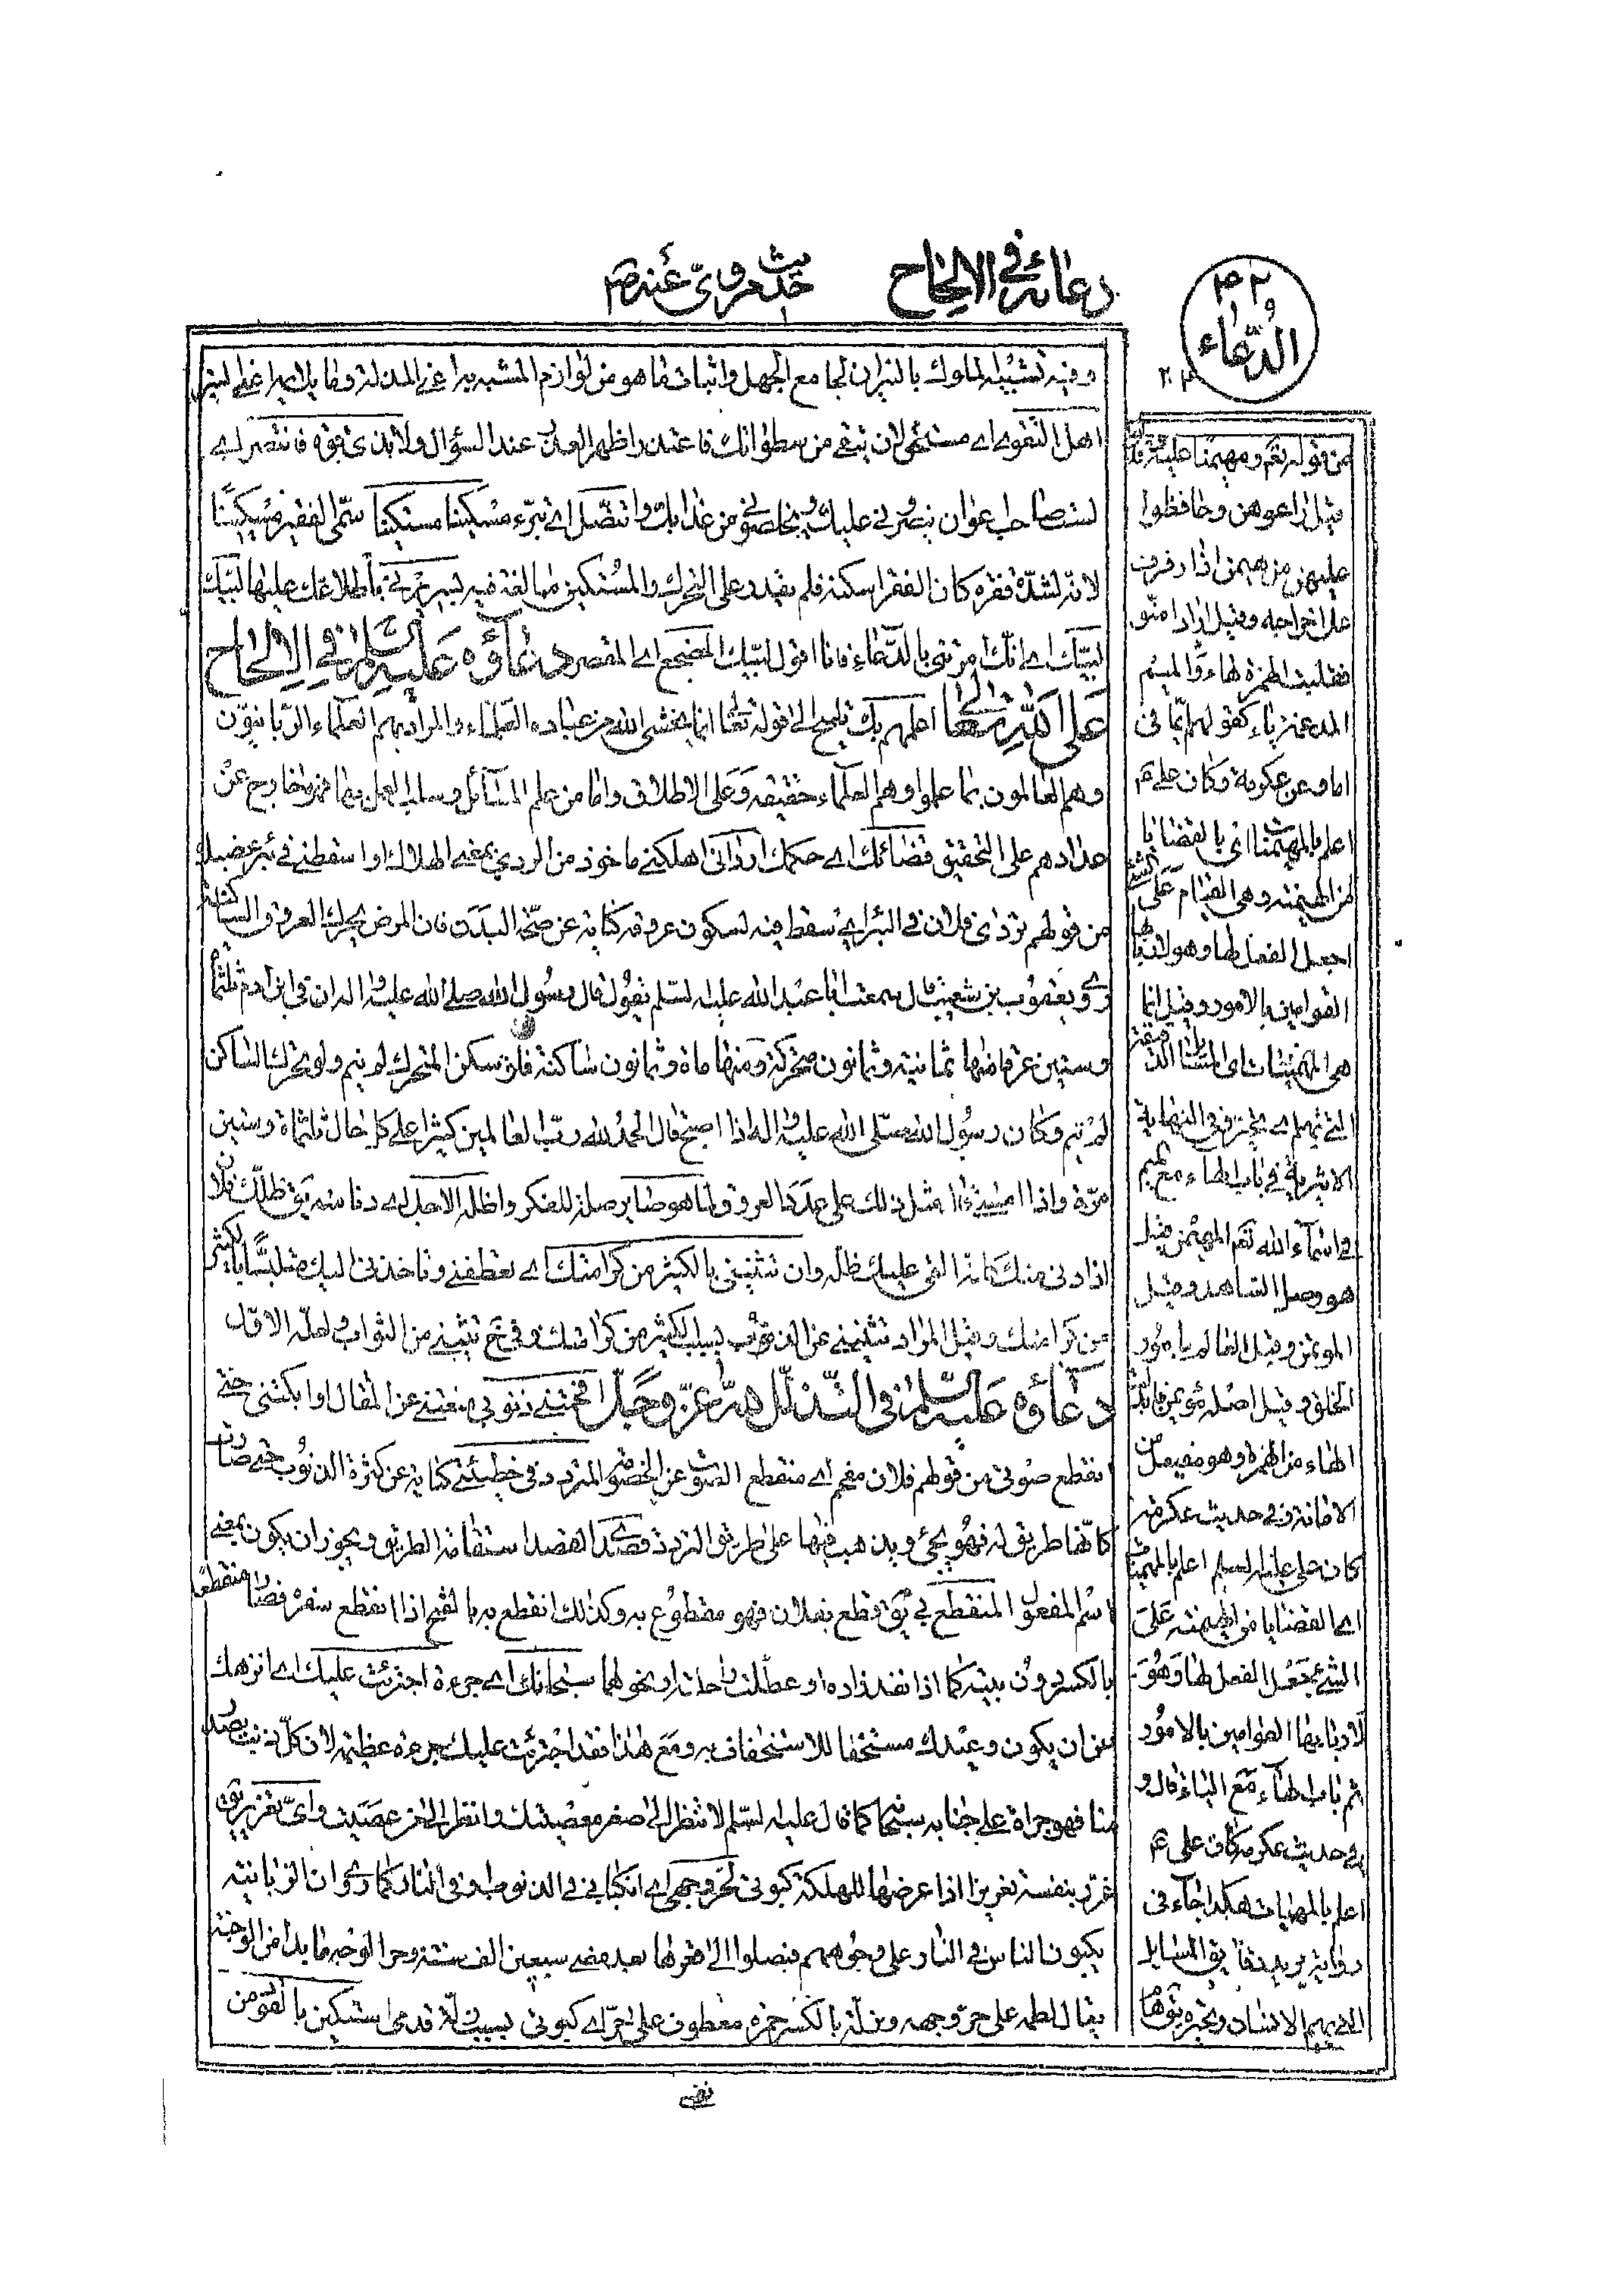 دعائه في الالحاح
حديث مروى عنه ص
٤٢
و
الدعاء
٢٠٤
وفيه تشبيه الملوك بالنيران لجامع الجهل واثبات ما هو من لوازم المشبه به اعني المذلة وما يلائمها اعني النير
اهل التقوى اى مستحق لان يتقى من سطواتك فاعتذر اظهر العذر عند السؤال ولا بذى قوة فانتصر اى
لست صاحب اعوان ينصرونى عليك ويخلصونى من عذابك واتنصل اى تبرء مسكينا مستكينا سمى الفقير مسكينا
لانه لشدة فقره كان الفقر اسكنه فلم يقدر على التحرك والمستكين مبالغة فيه باطلاعك عليها لبيك
لبيك اى انك امرتنى بالدعاء فانا اقول لبيك المضجع اى المقصر دعاؤه عليه السلام في الالحاح
على الله تعالى اعلمهم بك تلميح الى قوله تعالى انما يخشى الله من عباده العلماء والمراد بهم العلماء الربانيون
وهم العالمون بما علموا وهم العلماء حقيقة وعلى الاطلاق واما من علم المسائل وسلب العمل بها فهو خارج عن
عدادهم على التحقيق قضائك اى حكمك اردانى اهلكنى ماخوذ من الردى بمعنى الهلاك او اسقطنى في بئر
من قولهم تردى فلان في البئر اى سقط فيه لسكون عروقه كناية عن صحة البدن فان المرض يحرك العروق الساكنة
روى يعقوب بن شعيب قال سمعت ابا عبد الله عليه السلم يقول قال رسول الله صلى الله عليه واله ان في ابن ادم ثلثمائة
وستين عرقا منها ثمانية وثمانون متحركة ومنها ماة وثمانون ساكنة فلو سكن المتحرك لم ينم ولو تحرك الساكن
لم ينم وكان رسول الله صلى الله عليه واله اذا اصبح قال الحمد لله رب العالمين كثيرا على كل حال ثلثماة وستين
مرة واذا امسى قال مثل ذلك على عدد العروق ولما هو صاير صلة للفكر واظله الاجل اى دنا منه يق ظلك فلان
اذا دنى منك كانه القى عليك ظله وان تثنينى بالكثير من كرامتك اى تعطفنى وتاخذنى اليك متلبسا بالكثير
من كرامتك وقيل المراد تثنينى عن الذنوب بسبب الكثير من كرامتك وفي نخ تثيبنى من الثواب ولعله الاول
دعاؤه عليه السلام في التذلل لله عز وجل افحمتنى ذنوبي منعتنى عن المقال او ابكتنى حتى
انقطع صوتى من قولهم فلان مفحم اى منقطع الصوت عن الخصم المتردد في خطيئتى كناية عن كثرة الذنوب حتى صارت
كانها طريق له فهو يجئ ويذهب فيها على طريق التردد قصدى القصد استقامة الطريق ويجوز ان يكون بمعنى
اسم المفعول المنقطع بى يق قطع بفلان فهو مقطوع به وكذلك انقطع به بالفتح اذا انقطع سفره فصار منقطعا
بالكسر دون بيته كما اذا نفد زاده او عطلت راحلته او نحوهما سبحانك اى جرءة اجترئت عليك اى انزهك
عن ان يكون وعيدك مستخفا للاستخفاف به ومع هذا فقد اجترئت عليك جرءة عظيمة لان كل ذنب يصدر
منا فهو جراة على جنابه سبحانه كما قال عليه السلم لا تنظر الى صغر معصيتك وانظر الى من عصيت واى تغرير يق
غرر بنفسه تغريرا اذا عرضها للهلكة كبوتى لحر وجهى اى انكبابى في الذنوب او في النار كما روى ان الزبانية
يكبون الناس في النار على وجوههم فيصلوا الى قعرها بعد مضى سبعين الف سنة وحر الوجه ما بدا من الوجنة
يقال لطمه على حر وجهه وزلة بالكسر معطوف على الحر اى كبوتى بسبب زلة قدمى استكين بالقود من
من قوله تعالى ومهيمنا عليه
قيل راعوهن وحافظوا
عليهن من هيمن اذا رفرف
على افراخه وقيل اراد امنوا
فقلبت الهمزة هاء والميم
المدغمة ياء كقولهم ايما في
اما وعن عكرمة وكان على ع
اعلم بالمهيمنات اى بالقضايا
من الهيمنة وهى القيام على الشئ
جعل الفعل لها وهو لاربابها
القوامين بالامور وقيل انما
هى المهيمات اى المسائل الدقيقة
التى تهيم اى تحير في النهاية
الاثيرية في باب الهاء مع الميم
في اسماء الله تعم المهيمن قيل
هو وصل الشاهد وقيل
المؤتمن وقيل القائم بامور
الخلق وقيل اصله مؤيمن فابدلت
الهاء من الهمزة وهو مفيعل من
الامانة وفي حديث عكرمة
كان على عليه السلم اعلم بالمهيمنات
اى القضايا من الهيمنة على
الشئ بجعل الفعل لها وهو
لاربابها القوامين بالامور
ثم باب الهاء مع الياء قال و
في حديث عكرمة كان على ع
اعلم بالمهيمات هكذا جاء في
رواية يريد دقايق المسايل
التى تهيم الانسان وتحيره
نفسى